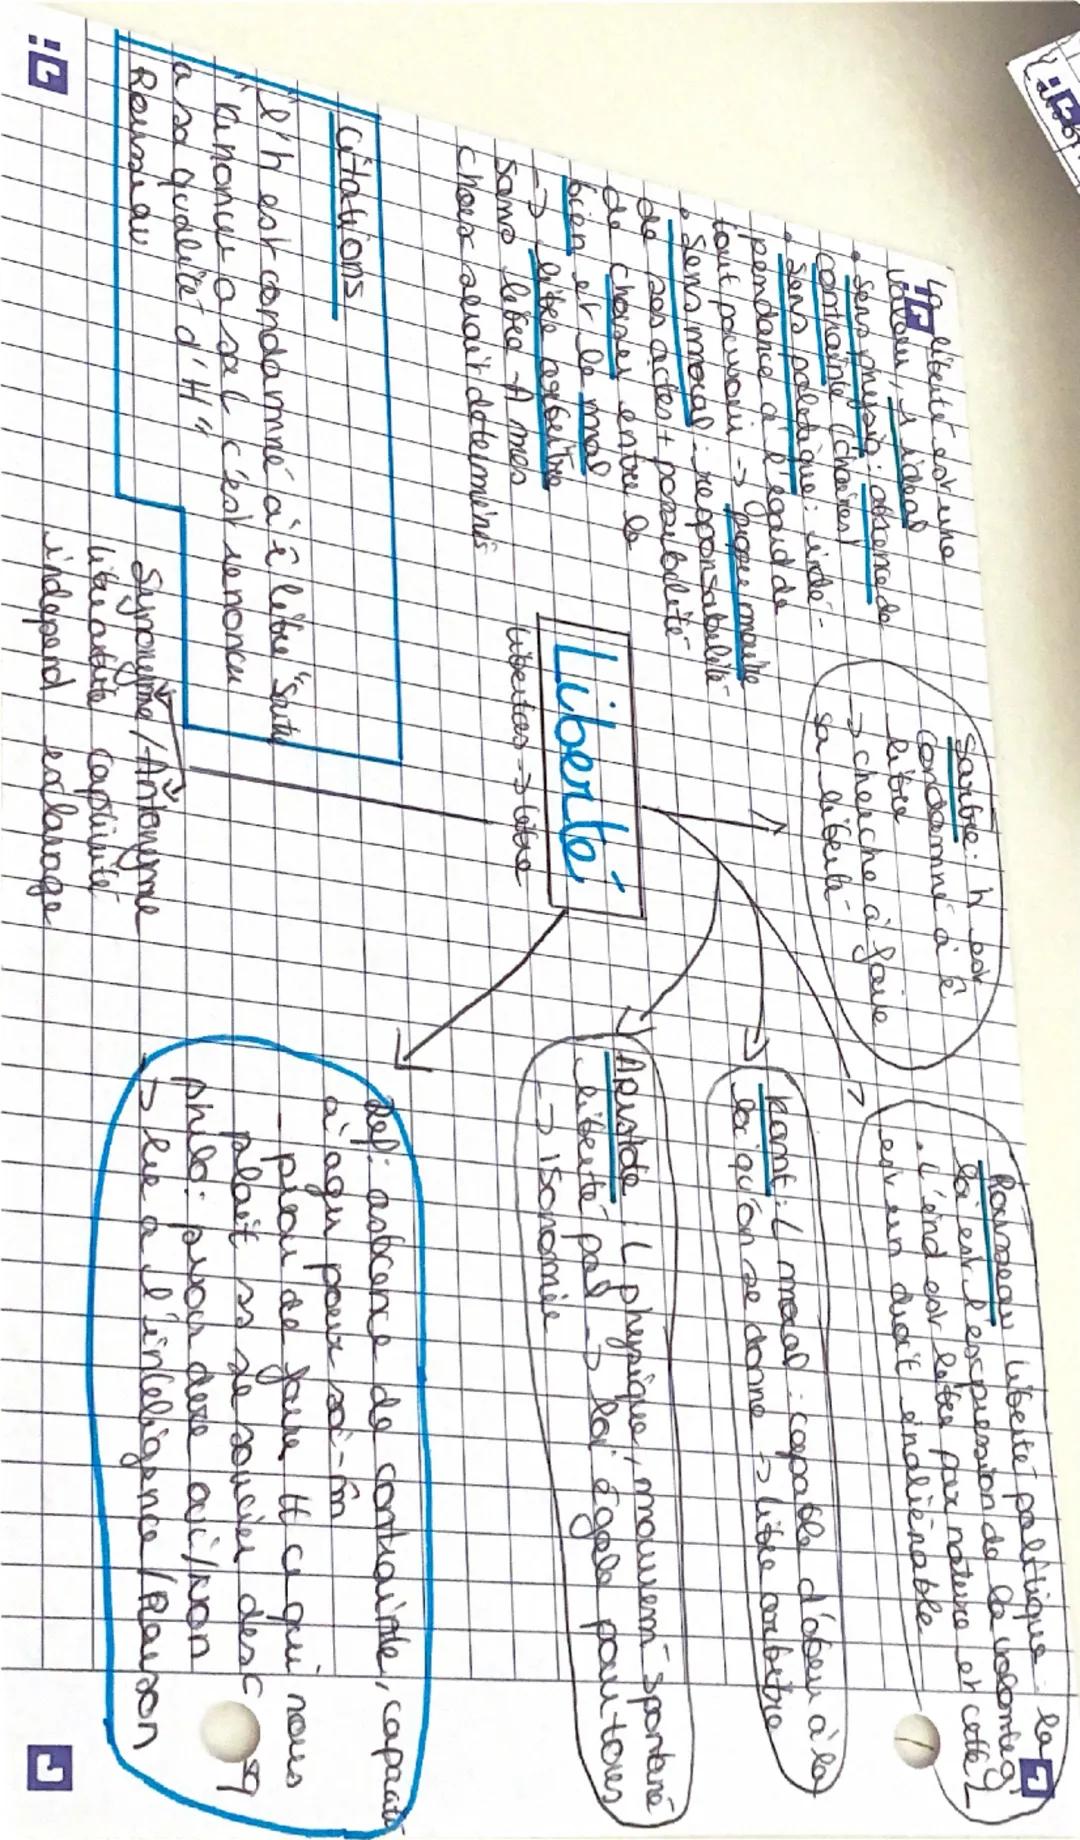 La liberté est une
valeur, 1 idéal
• Sens physiq: absence de
contrainte (chaines)
• Sens politique: indé-
pendance à l'égard de
tout pouvoir -> pagee manille
• Sens moral: responsabilité
de ses actes + possibilité
de choisir entre le
bien et le mal
-> libre arbitre
Sans libre A mes
choix serait déterminés
Sartre: h est
condamné à ê
libre
-> cherche à faire
sa liberté
Rousseau liberté politique: la
loi est l'expression de la volonté g
. L'ind est libre par nature et cette L
est un droit inaliénable
Kant: L moral: capable d'obéir à la
loi qu'on se donne -> libre arbitre
Aristote: L physique, mouvem spontané
liberté pol -> loi égale pour tous
-> isonomie
Liberté
libertas -> libre
Citations
"l'h est condamné à ê libre" Sartre
"Renoncer a sa L c'est renoncer
a sa qualité d'H"
Rousseau
Synonyme/Antonyme
libre arbitre captivité
independ esclavage
Def: absence de contrainte, capacité
à agir pour soi-m̂
- pvoir de faire tt ce qui nous
plait ss se soucier des C q
philo: pvoir dire oui/non
-> lié a l'intelligence/Raison